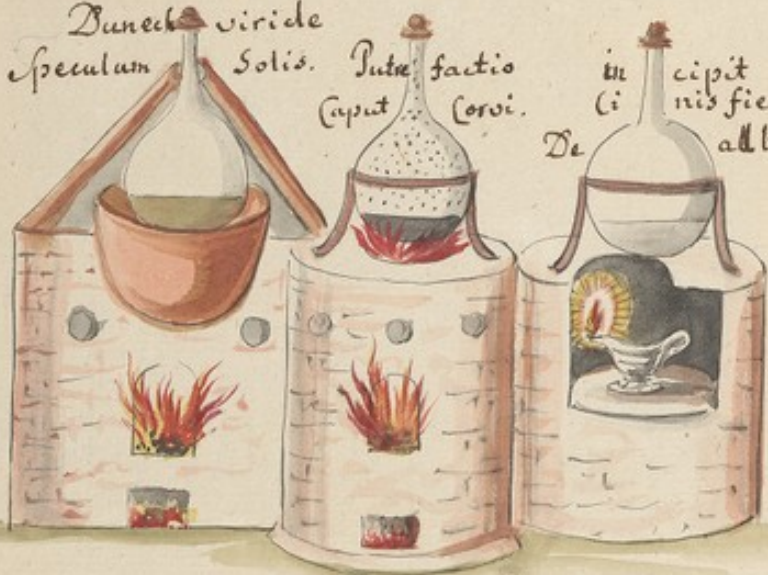 Dunech viride
Speculum Solis.
Putre factio
Caput Corvi.
in cipit
Ci nis fie
De all